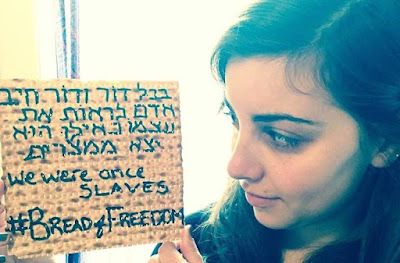 בכל דור ודור חיב
אדם לראות את
עצמו כאילו הוא
יצא ממצרים
We were once
SLAVES
#BREAD of FREEDOM